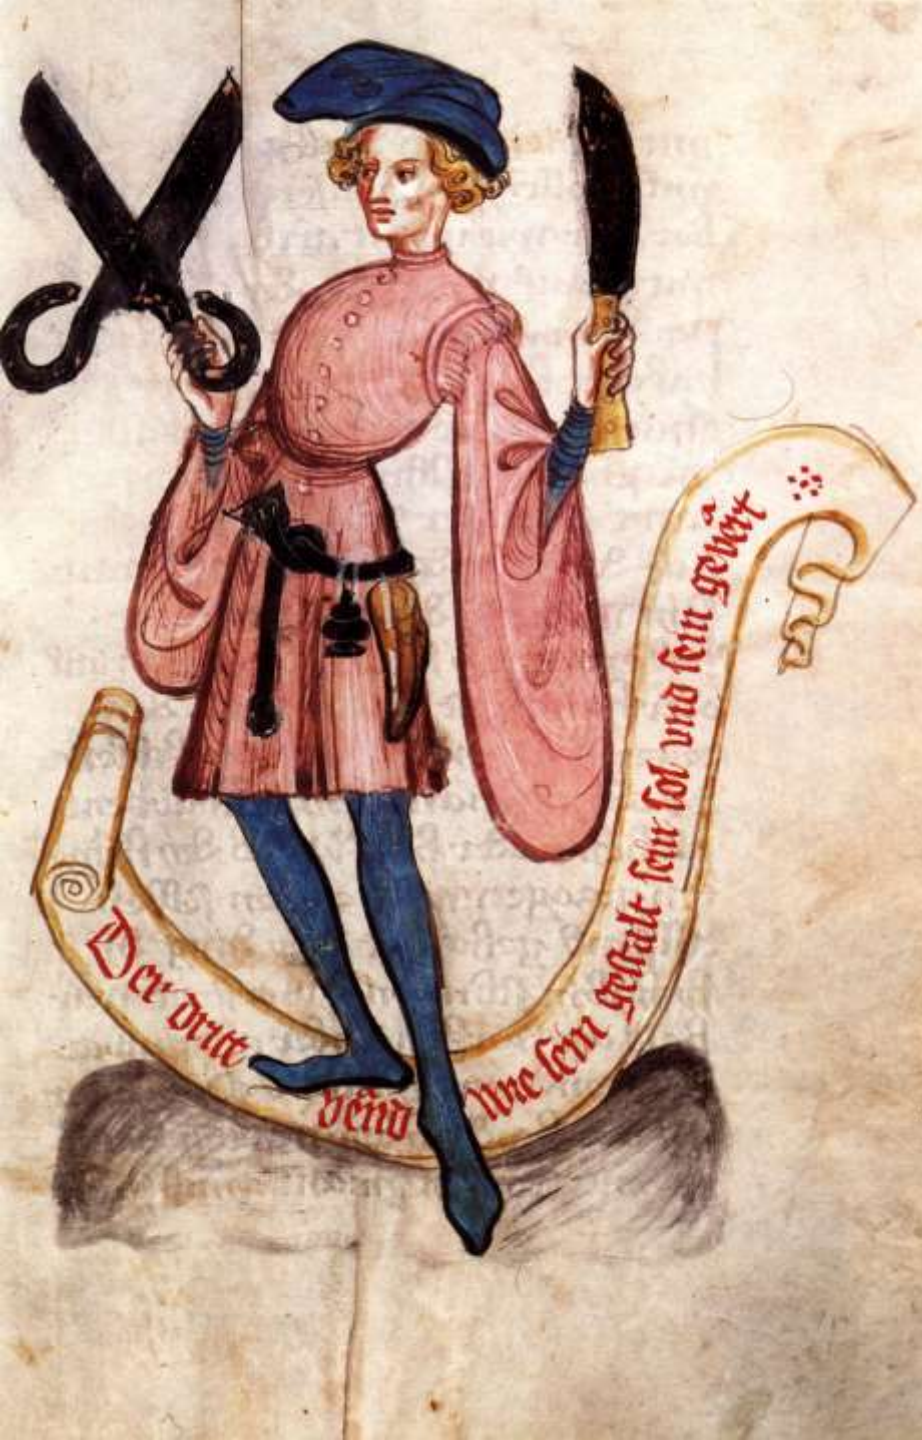 Der dritt vend wie sein gestalt sein sol vnd sein geveͣrt